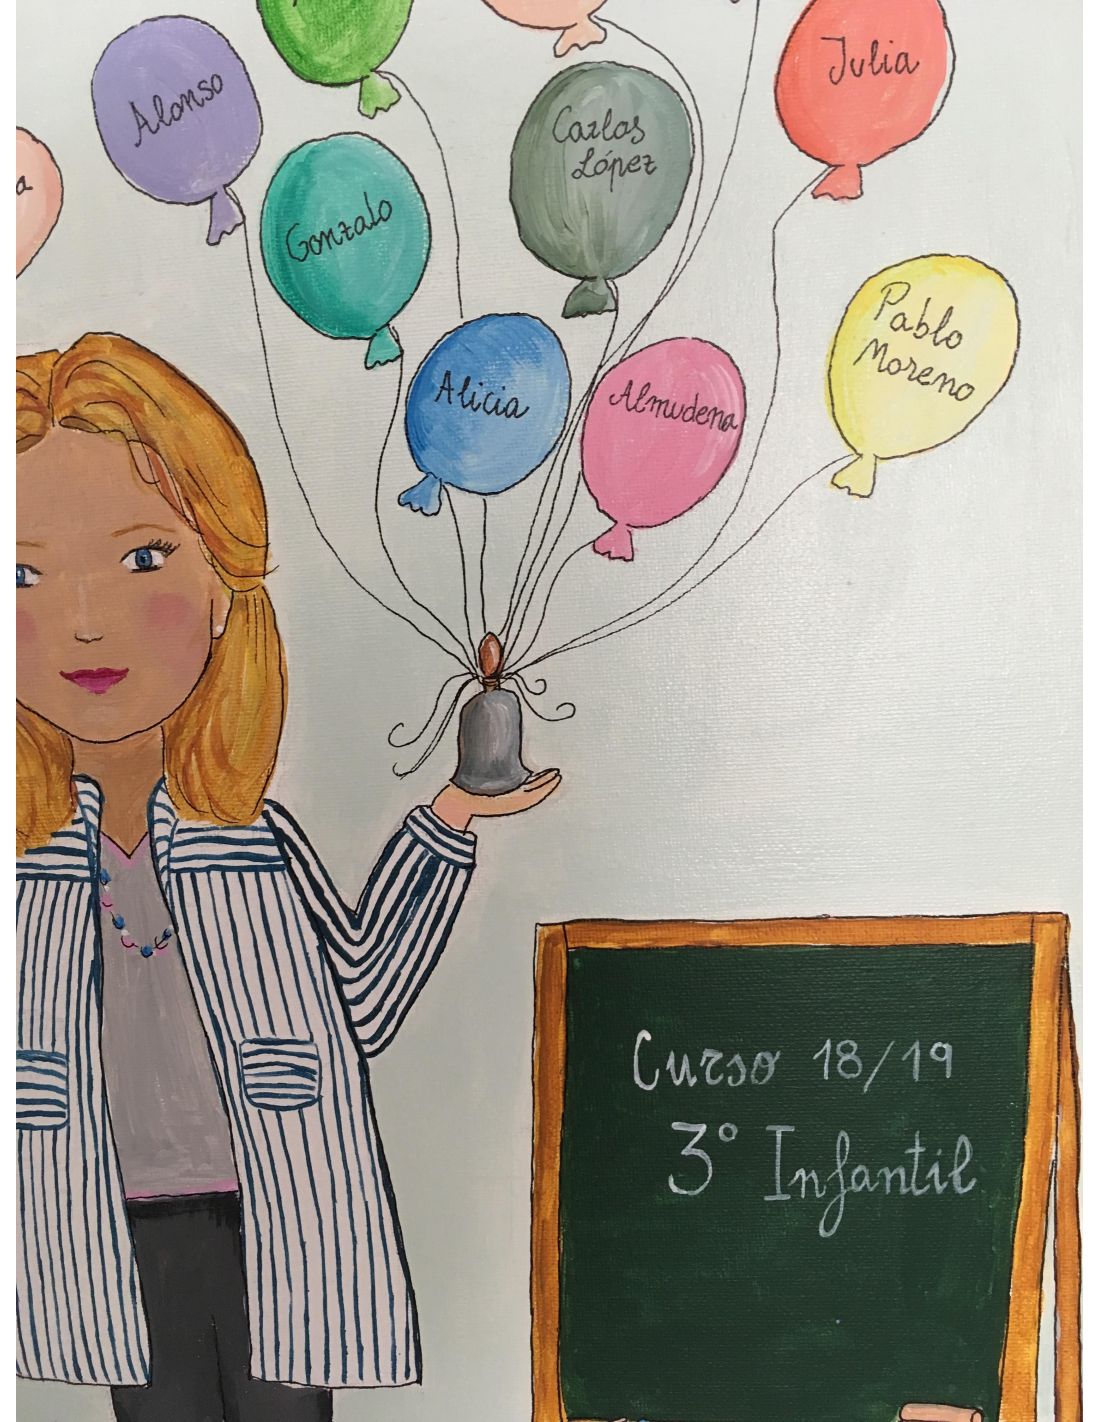 Julia
Alonso
Carlos
López
Gonzalo
Pablo
Moreno
Alicia
Almudena
Curso 18/19
3º Infantil